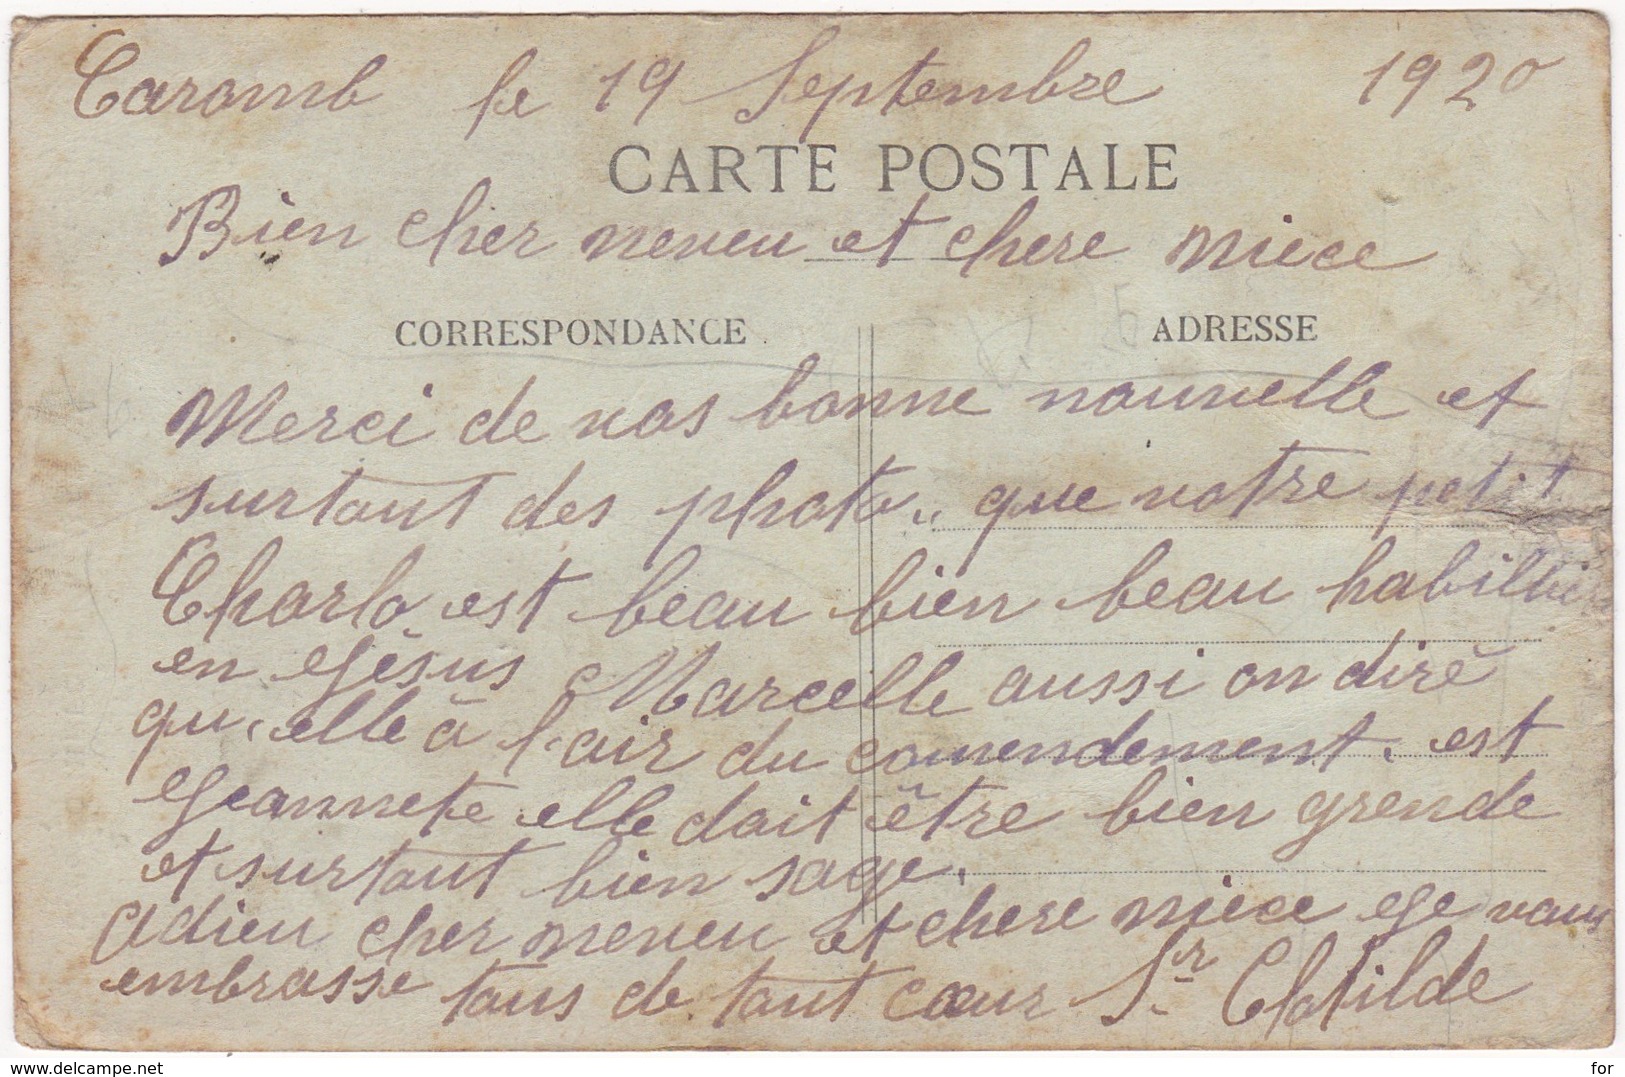 Caromb le 19 Septembre 1920
CARTE POSTALE
Bien cher neveu et chere niece
CORRESPONDANCE ADRESSE
Merci de vos bonne nouvelle et
surtout des photo, que votre petit
Charlo est beau bien beau habillié
en Gésus Marcelle aussi on diré
qu'elle à l'air du comendement. est
Geannete elle doit être bien grende
et surtout bien sage.
Adieu cher neveu et chere niece Ge vous
embrasse tous de tout cœur Sr Clotilde
www.delcampe.net
for